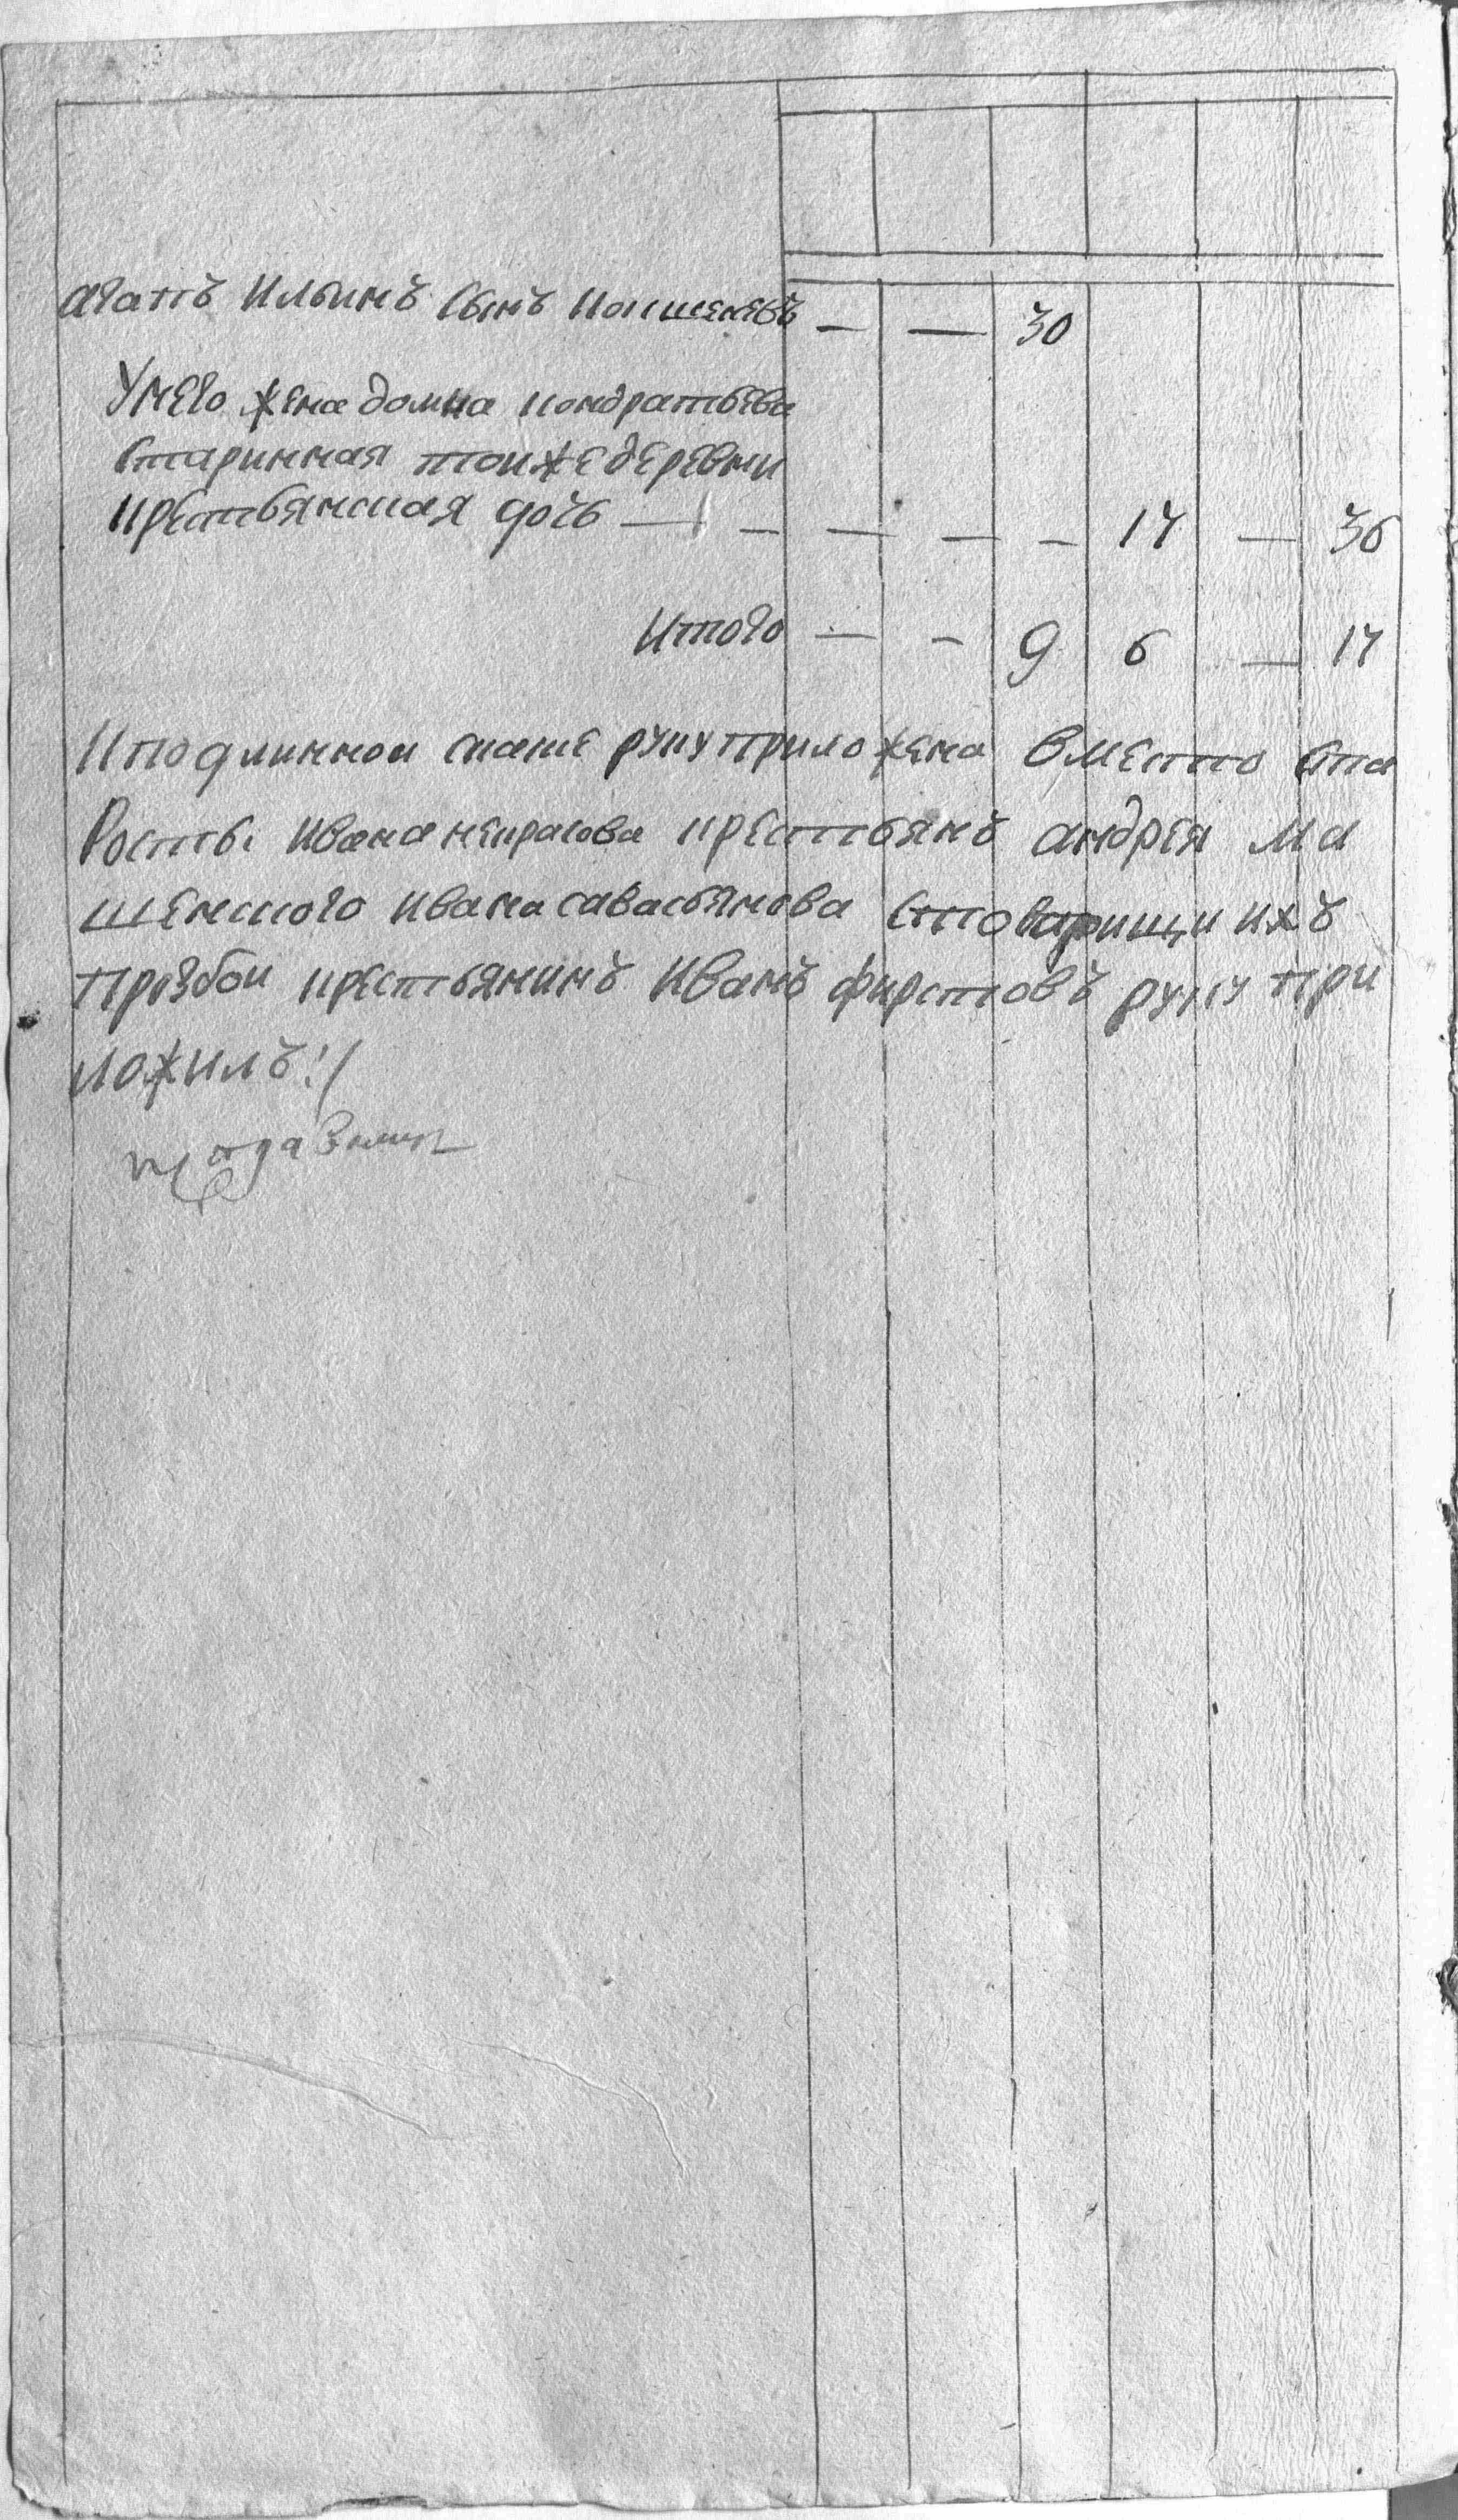 агапъ Ильинъ сынъ Кошелевъ — — 30
У него жена домна кондратьева
старинная тои же деревни
крестьянская дочь — — — — — 17 — 36
Итого — — 9 6 — 17
К подлиннои скаске руку приложена вместо ста
росты Ивана некрасова крестьянъ андрея Ма
шенского ивана савасьянова стоварищи ихъ
прозбои крестьянинъ Иванъ фирстовъ руку при
ложилъ